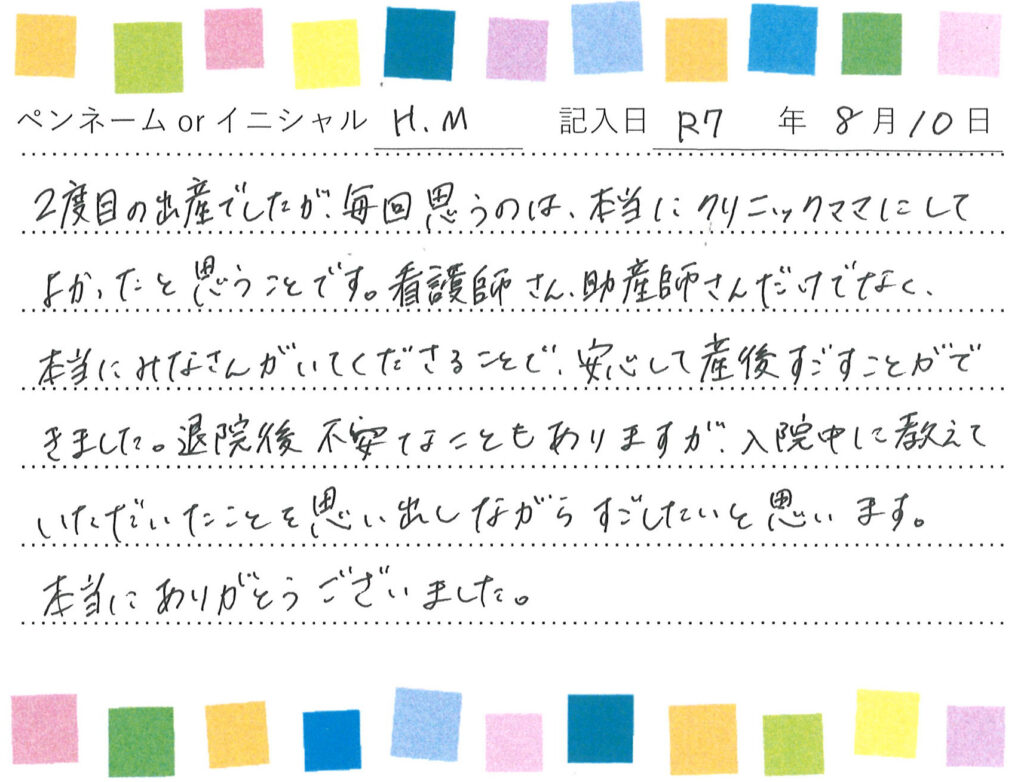 ペンネーム or イニシャル H.M 記入日 R7 年 8月10日
2度目の出産でしたが、毎回思うのは、本当にクリニックママにして
よかったと思うことです。看護師さん、助産師さんだけでなく、
本当にみなさんがいてくださることで、安心して産後すごすことがで
きました。退院後不安なこともありますが、入院中に教えて
いただいたことを思い出しながらすごしたいと思います。
本当にありがとうございました。